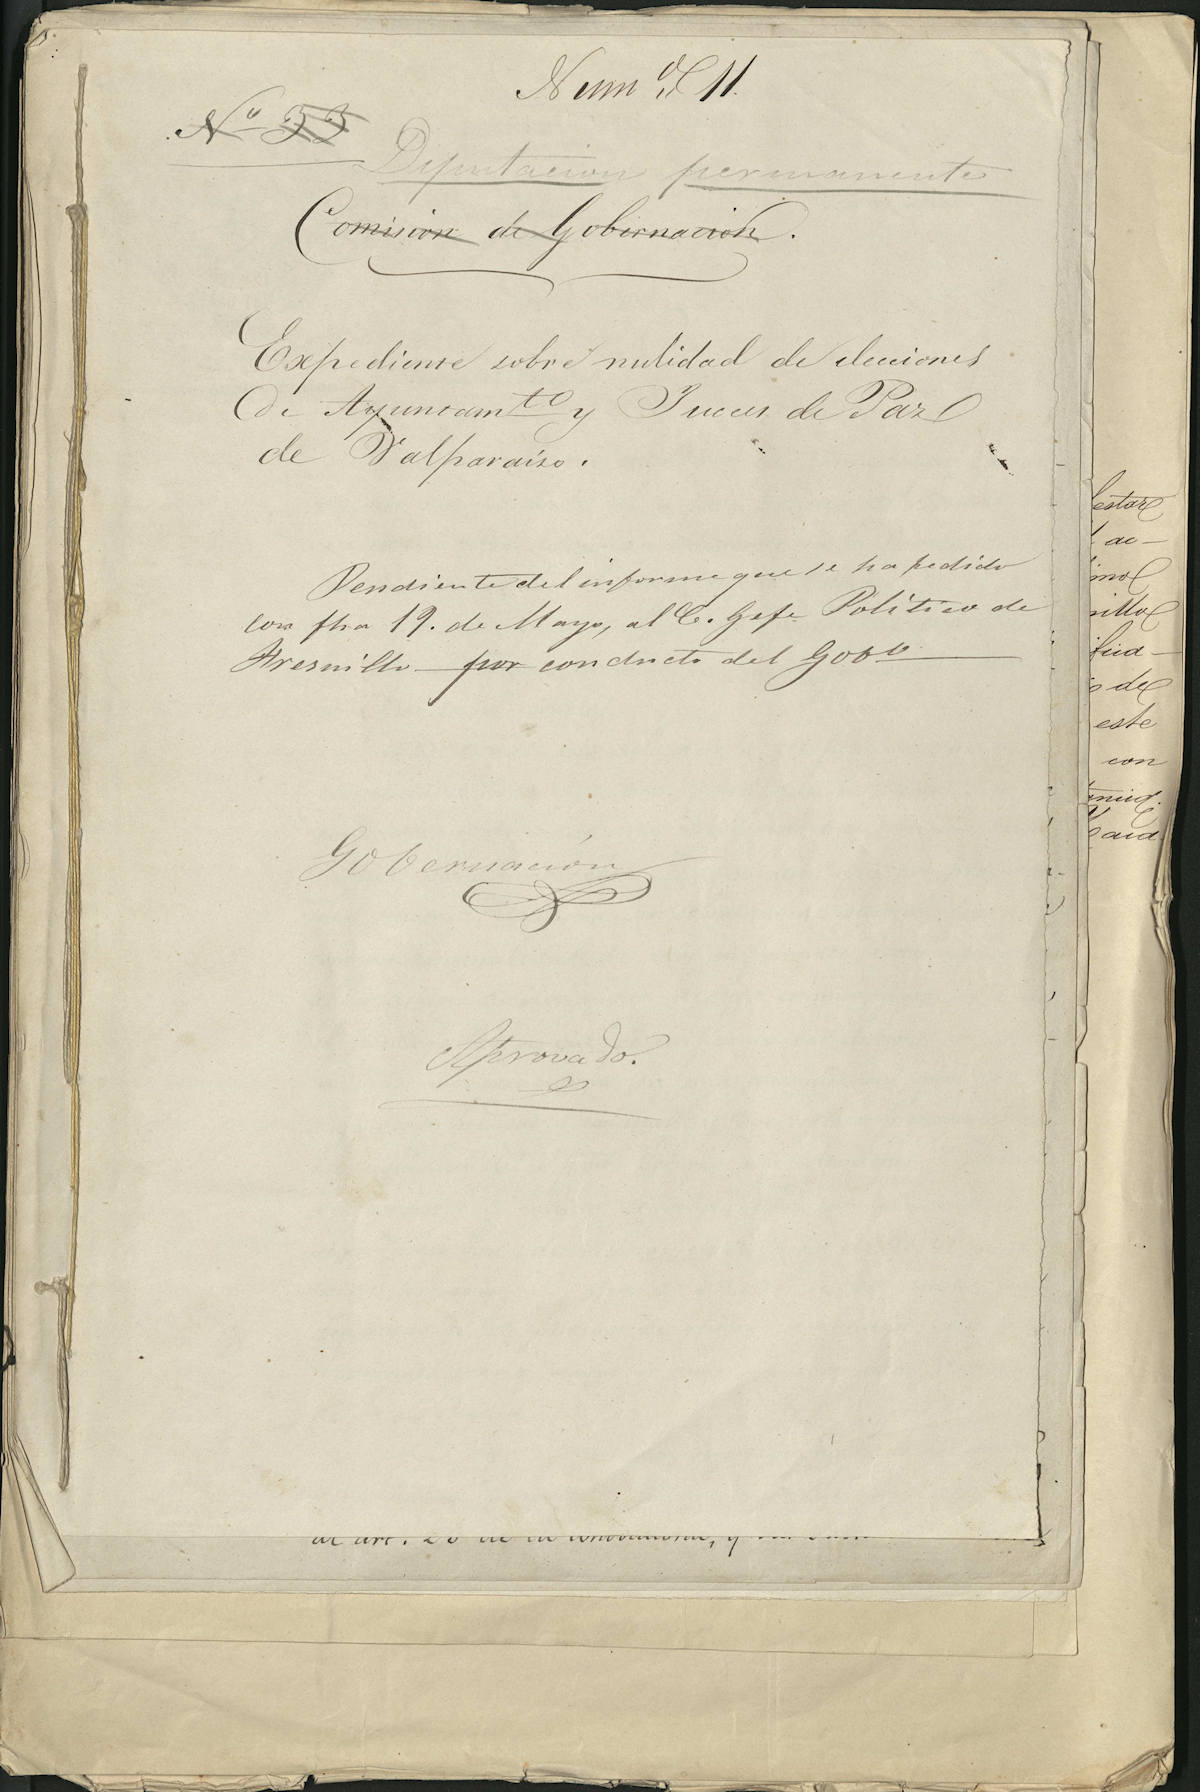 Num.º 11.
Nº 55
Diputacion permanente
Comision de Gobernacion.
Expediente sobre nulidad de elecciones
de Ayuntamto y Jueces de Paz
de Valparaiso.
Pendiente del informe que se ha pedido
con fha 19. de Mayo, al C. Gefe Politico de
Fresnillo por conducto del Gobo
Gobernación
Aprovado.
al art. 20 de la convocatoria, y
estar
ac—
este
con